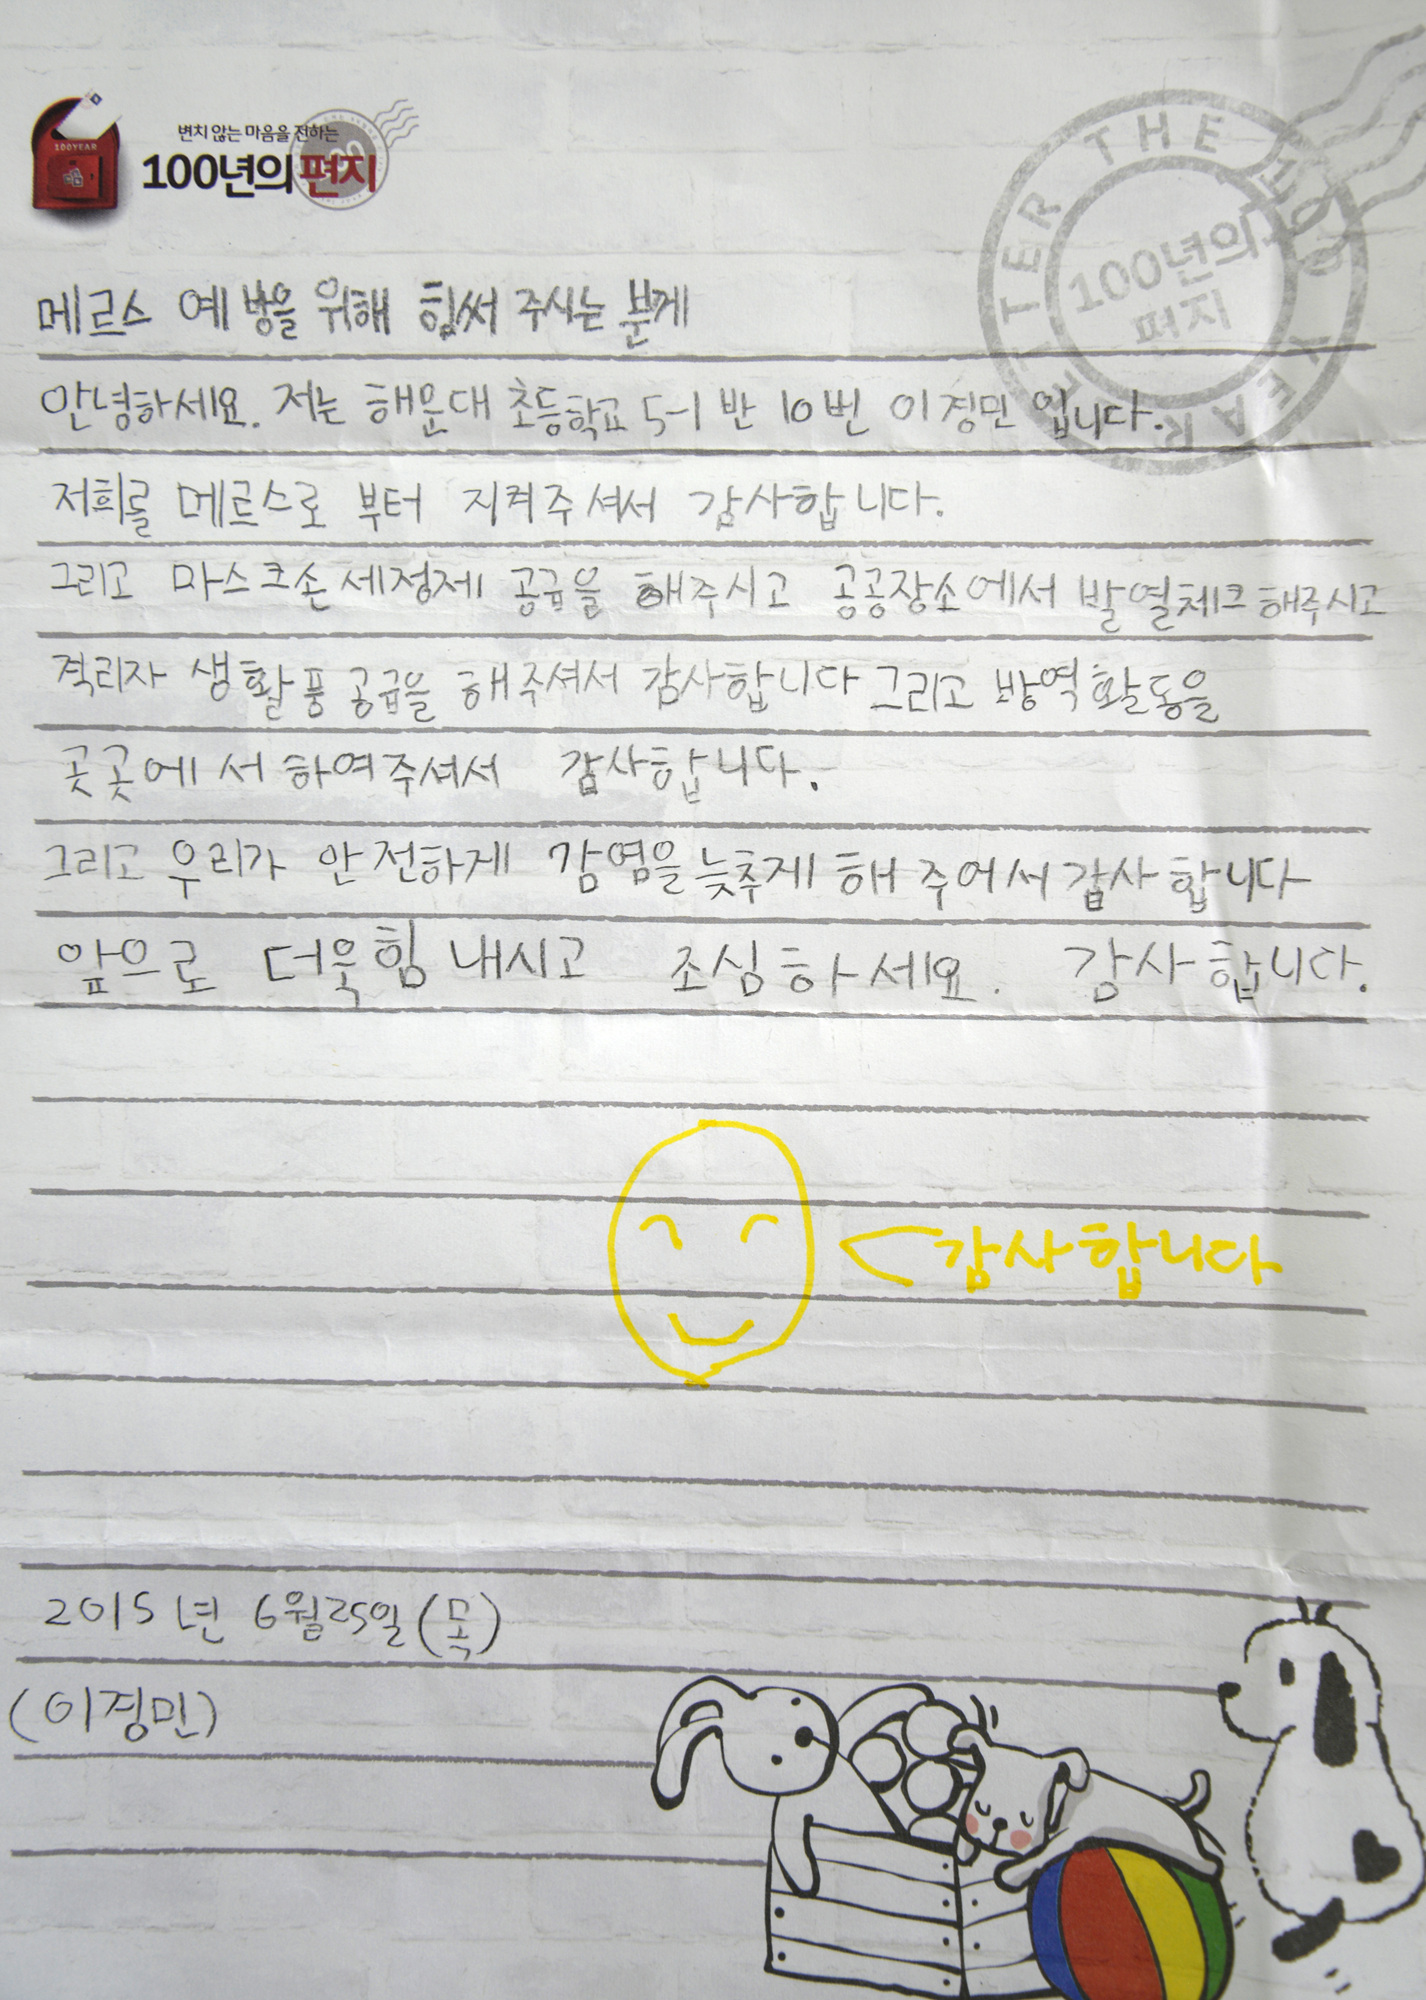 100YEAR
변치 않는 마음을 전하는
100년의 편지
THE LETTER YEAR
100년의
편지
메르스 예방을 위해 힘써 주시는 분께
안녕하세요. 저는 해운대 초등학교 5-1 반 10번 이정민 입니다.
저희를 메르스로 부터 지켜주셔서 감사합니다.
그리고 마스크손세정제 공급을 해주시고 공공장소에서 발열체크해주시고
격리자 생활품공급을 해주셔서 감사합니다 그리고 방역활동을
곳곳에서 하여주셔서 감사합니다.
그리고 우리가 안전하게 감염을 늦추게 해 주어서 감사합니다
앞으로 더욱힘 내시고 조심하세요. 감사합니다.
감사합니다
2015년 6월25일(목)
(이정민)